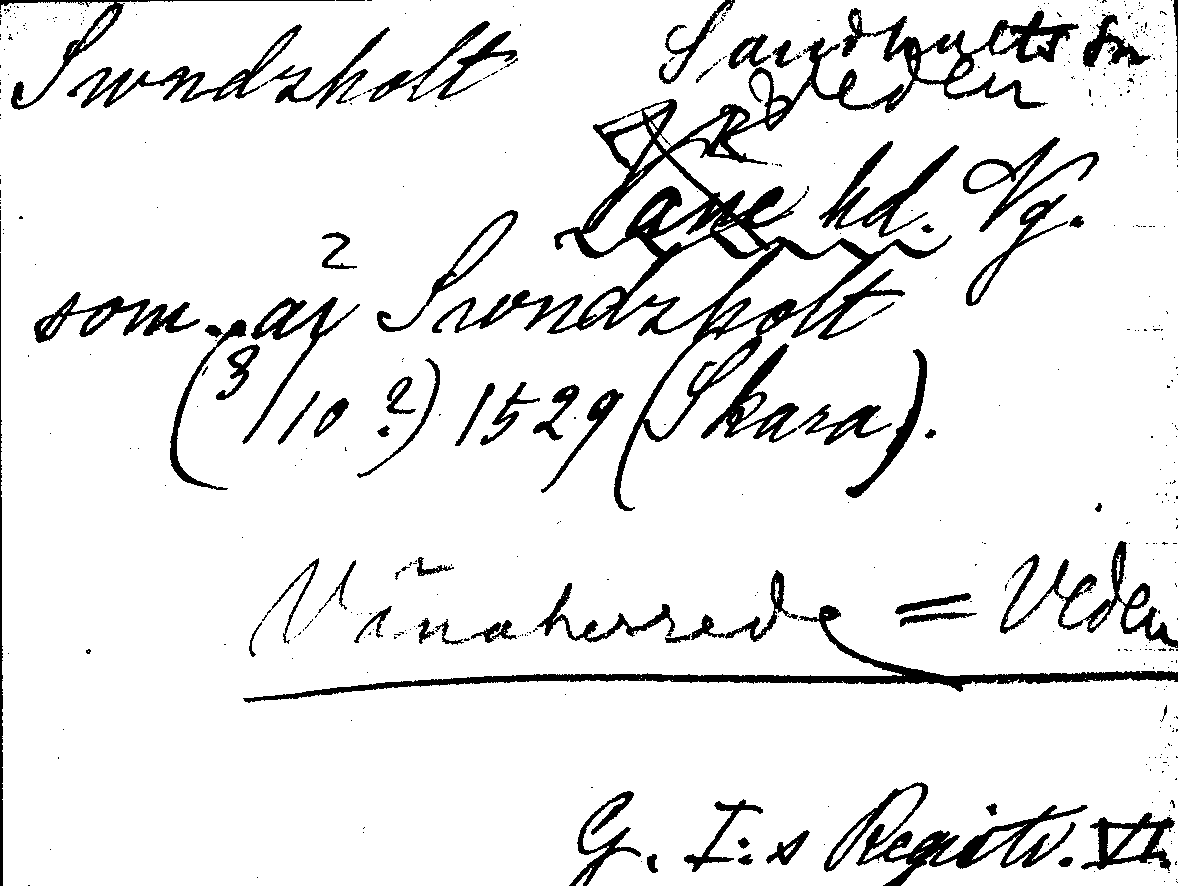 Swndzholt Sandhults sn
Veden
Vane hd. Vg.
som är Swndzholt
(3/10 ?) 1529 (Skara).
Vänaherrede = Veden
G. I:s Registr. VI.